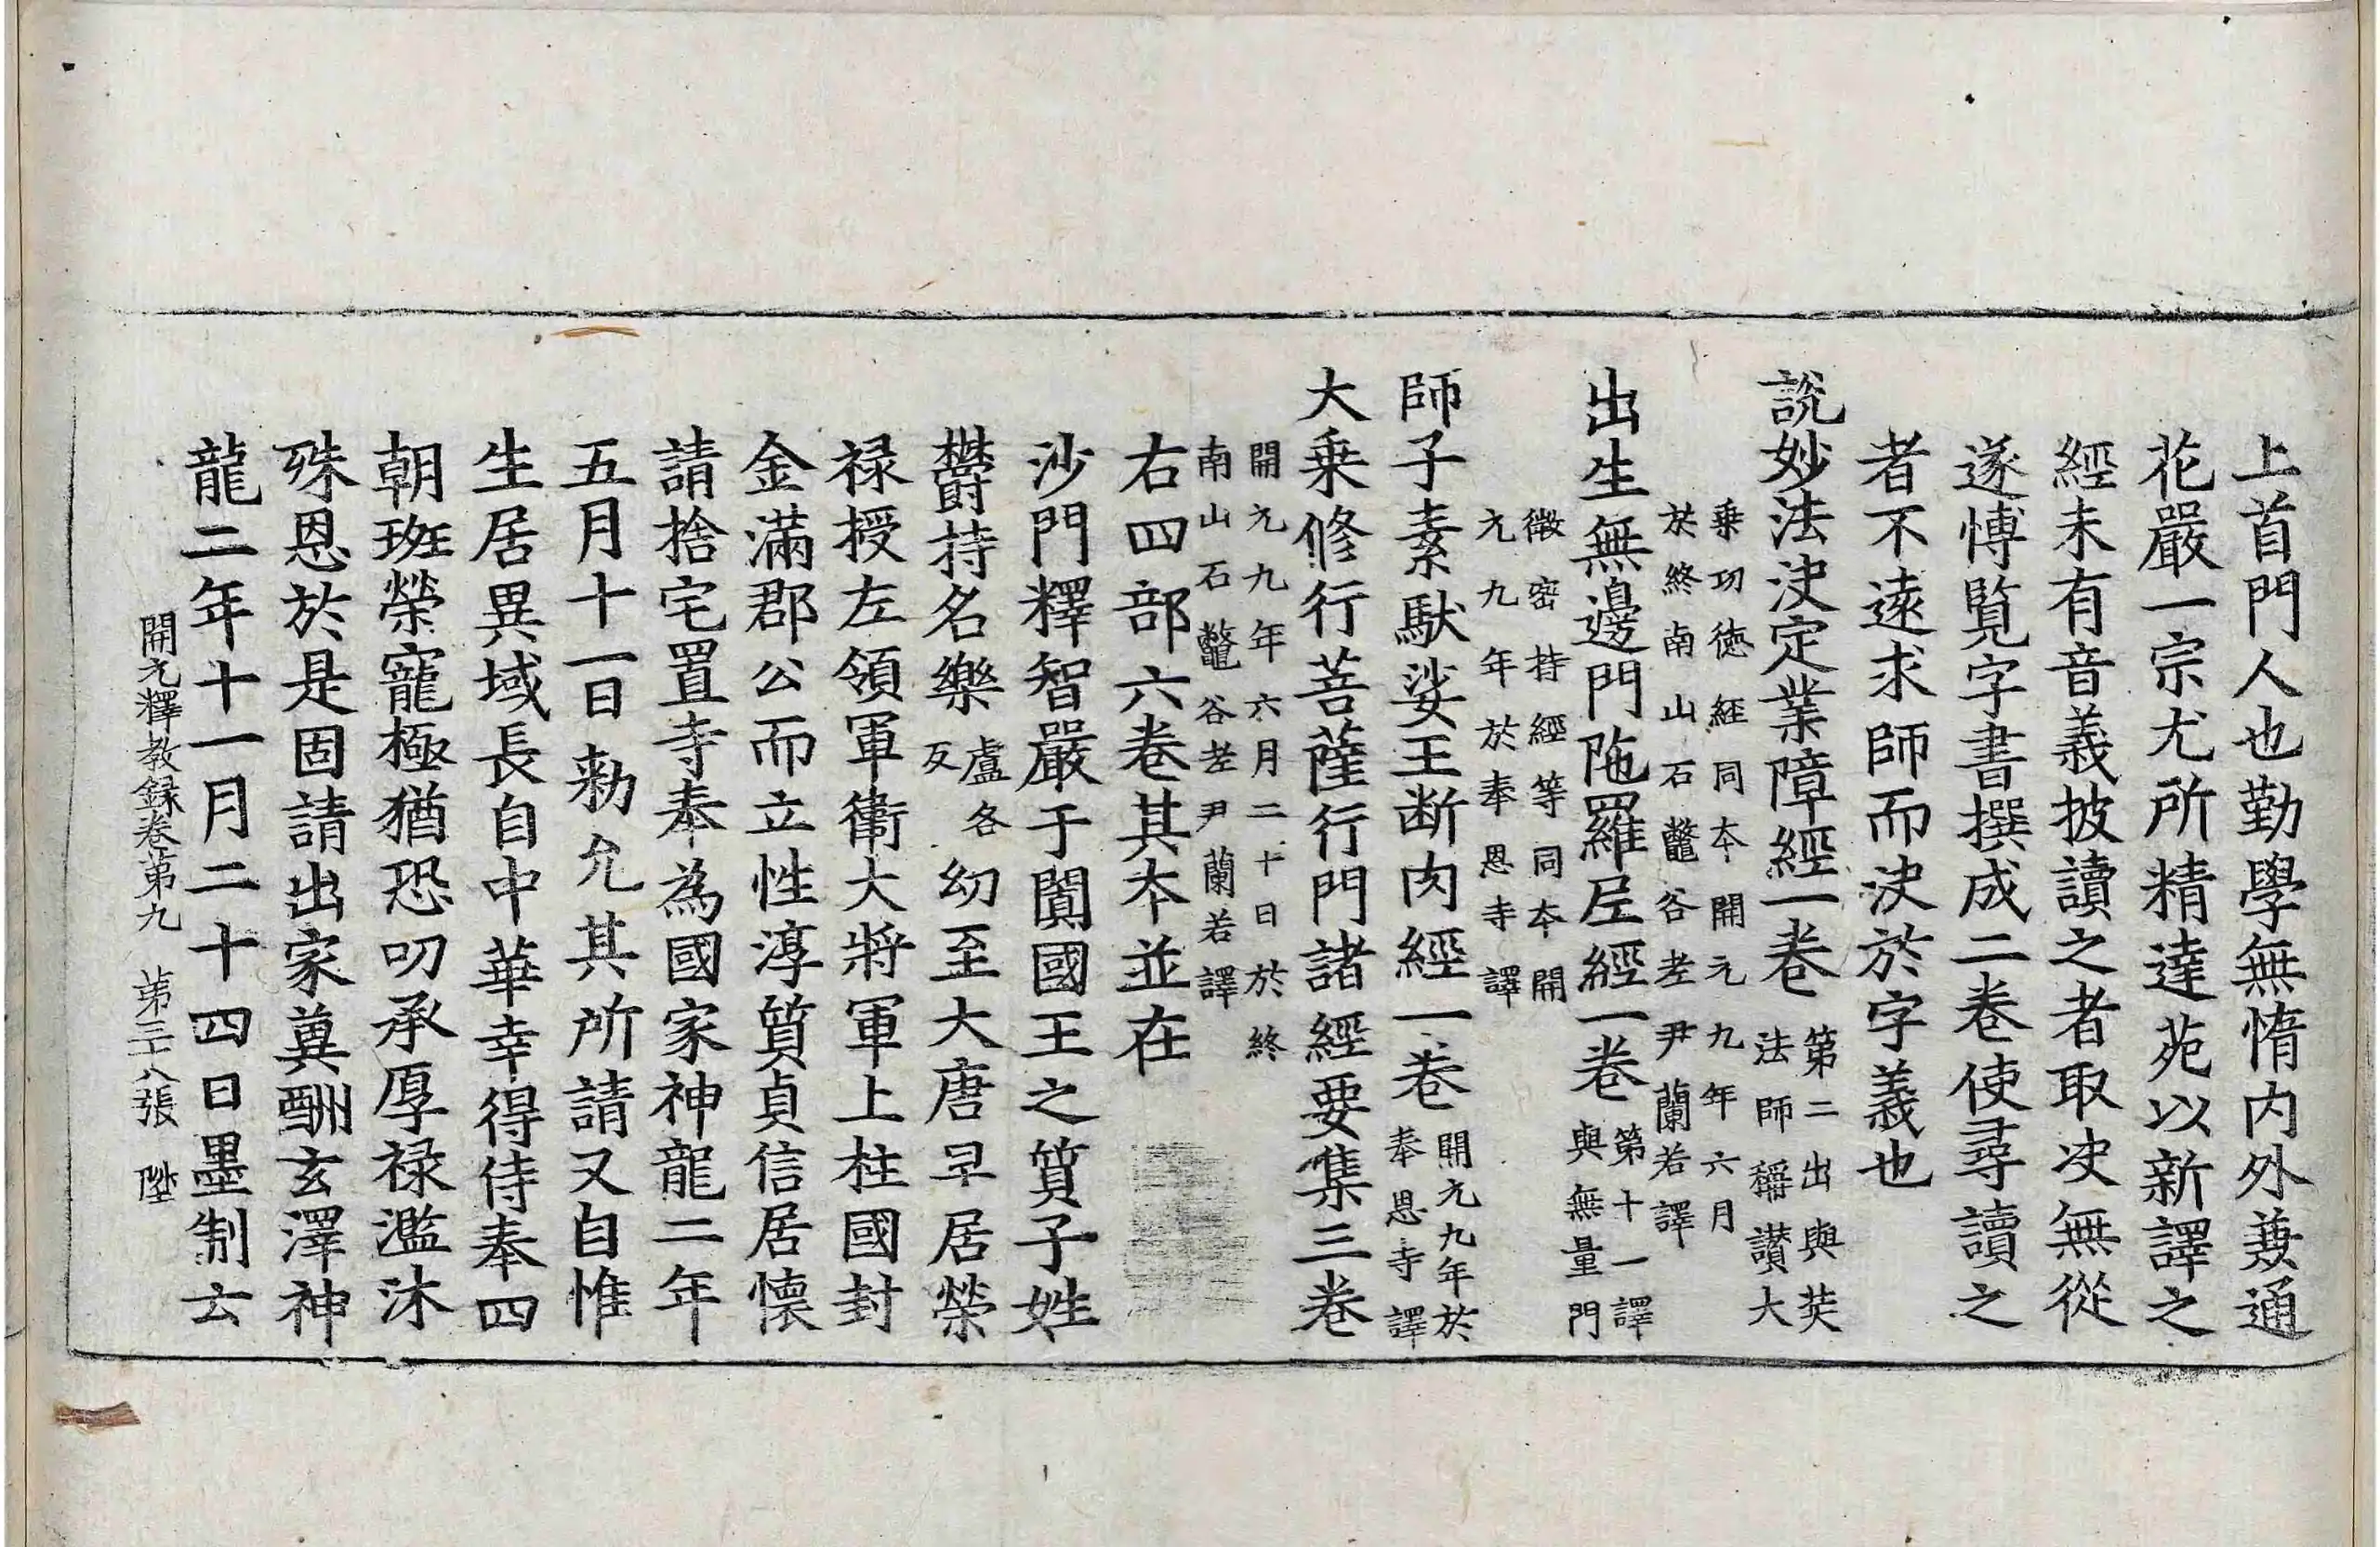 上首門人也勤學無惰内外兼通
花嚴一宗尤所精達苑以新譯之
經未有音義披讀之者取決無從
遂博覽字書撰成二卷使尋讀之
者不遠求師而決於字義也
說妙法決定業障經一卷第二出與奘法師稱讚大
乗功德經同本開元九年六月於終南山石鼈谷老尹蘭若譯
出生無邊門陁羅尼經一卷第十一譯與無量門
微密持經等同本開元九年於奉恩寺譯
師子素馱娑王断肉經一卷開元九年於奉恩寺譯
大乗修行菩薩行門諸經要集三卷
開元九年六月二十日於終南山石鼈谷老尹蘭若譯
右四部六卷其本並在
沙門釋智嚴于闐國王之質子姓
欝持名樂盧各反幼至大唐早居榮
禄授左領軍衛大將軍上柱國封
金滿郡公而立性淳質貞信居懷
請捨宅置寺奉為國家神龍二年
五月十一日勑允其所請又自惟
生居異域長自中華幸得侍奉四
朝班榮寵極猶恐叨承厚禄濫沐
殊恩於是固請出家兾酬玄澤神
龍二年十一月二十四日墨制云
開元釋教録卷第九　第三十八張　陞